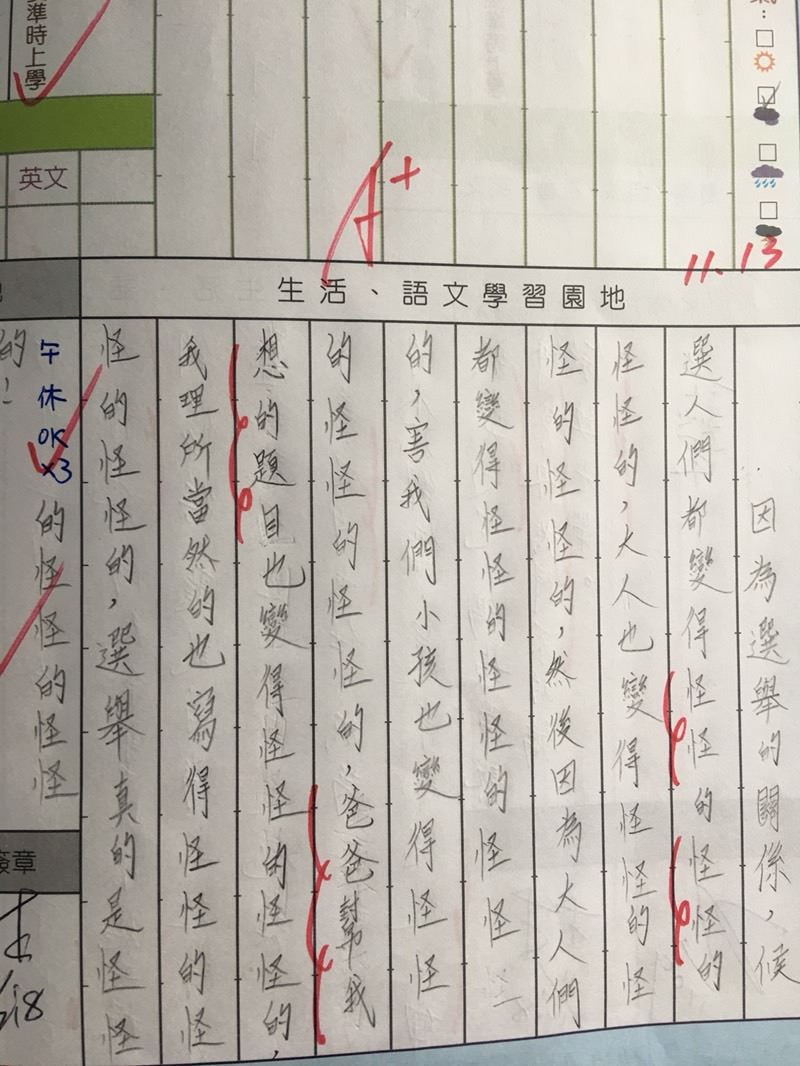 準時上學
英文
A+
11.13
生活、語文學習園地
因為選舉的關係，候
選人們都變得怪怪的怪怪的
怪怪的，大人也變得怪怪的怪
怪的怪怪的，然後因為大人們
都變得怪怪的怪怪的怪怪
的，害我們小孩也變得怪怪
的怪怪的怪怪的，爸爸幫我
想的題目也變得怪怪的怪怪的，
我理所當然的也寫得怪怪的怪
怪的怪怪的，選舉真的是怪怪
的怪怪的怪怪
午休OKx3
的！
簽章